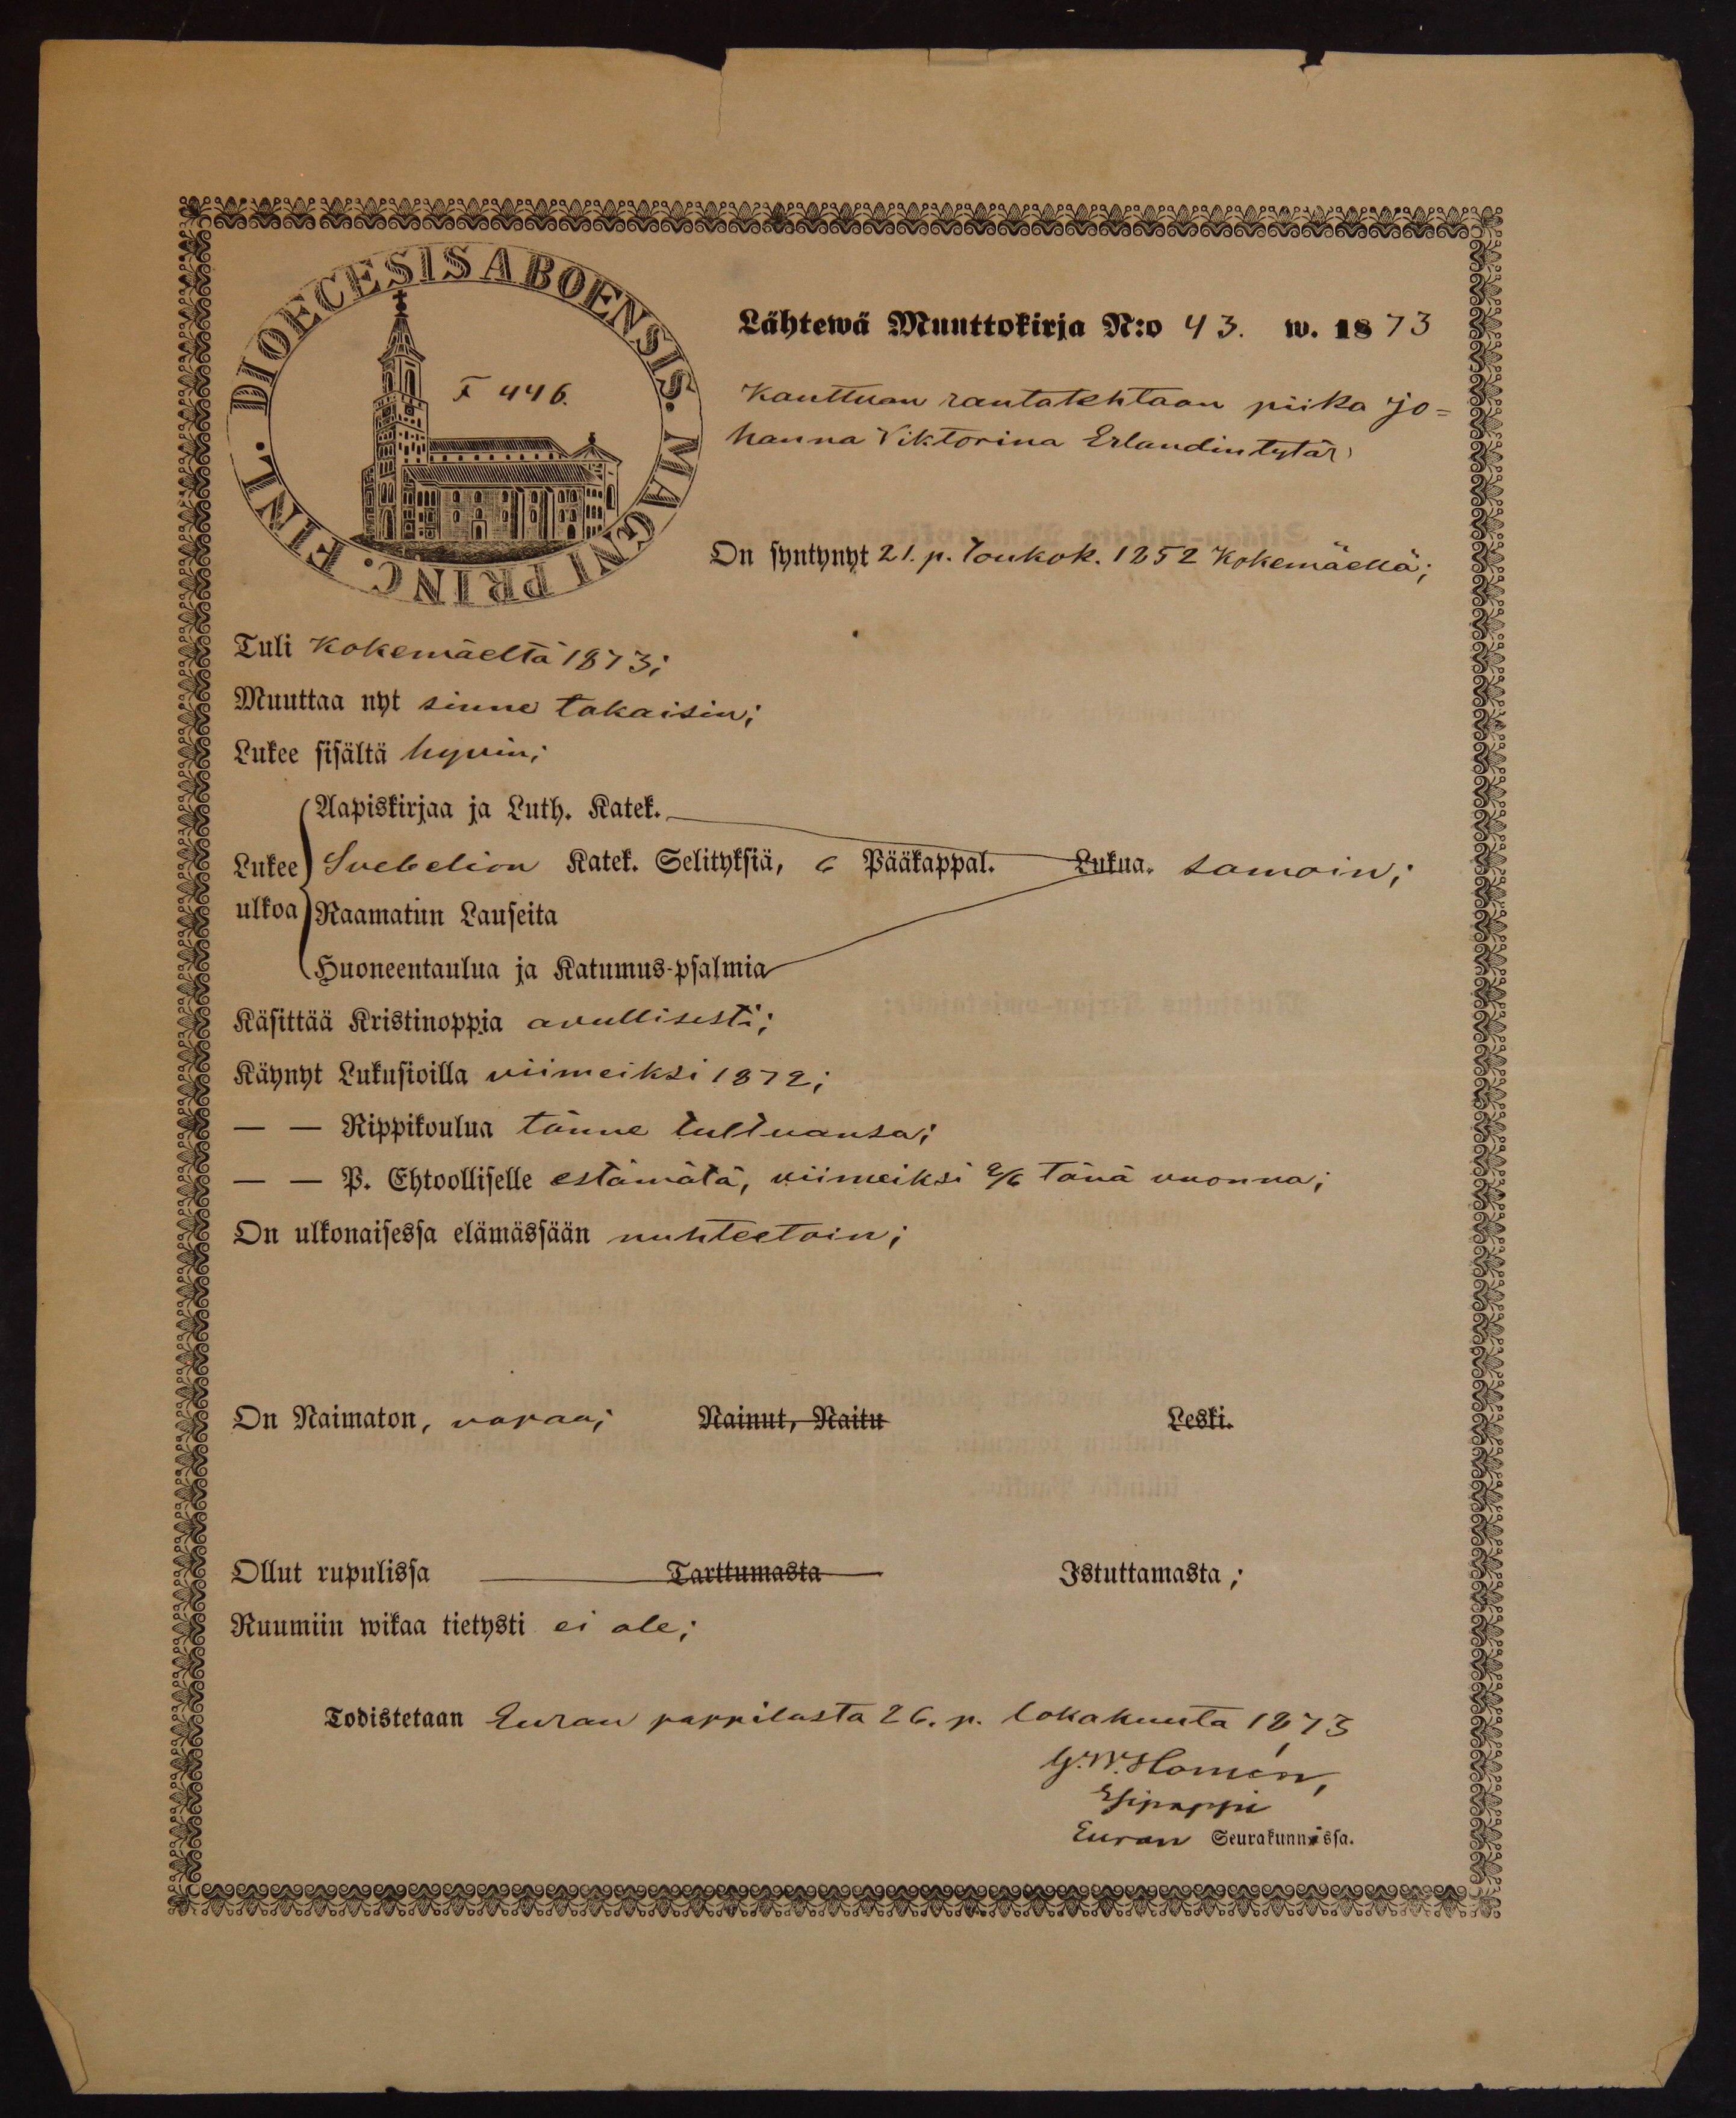 DIOECESIS ABOENSIS. MAGNI PRINC. FINL.
F 446.
Lähtewä Muuttokirja N:o 43. w. 1873
Kauttuan rautatehtaan piika Jo=
hanna Viktorina Erlandintytär;
On syntynyt 21. p. Toukok. 1852 Kokemäellä;
Tuli Kokemäeltä 1873;
Muuttaa nyt sinne takaisin;
Lukee sisältä hyvin;
Aapiskirjaa ja Luth. Katek.
Lukee Svebelion Katek. Selityksiä, 6 Pääkappal. Lukua. samoin;
ulkoa Raamatun Lauseita
Huoneentaulua ja Katumus-psalmia
Käsittää Kristinoppia avullisesti;
Käynyt Lukusioilla viimeiksi 1872;
— — Rippikoulua tänne tultuansa;
— — P. Ehtoolliselle estämätä, viimeiksi 2/6 tänä vuonna;
On ulkonaisessa elämässään nuhteetoin;
On Naimaton, vapaa; Nainut, Naitu Leski.
Ollut rupulissa Tarttumasta Istuttamasta;
Ruumiin wikaa tietysti ei ole;
Todistetaan Euran pappilasta 26. p. lokakuuta 1873
G. W. Homén,
Esipappi
Euran Seurakunnassa.